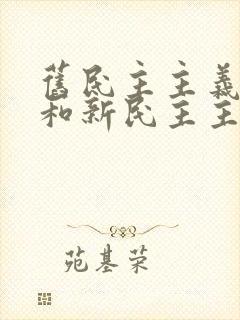 舊民主主義
和新民主主
苑基荣